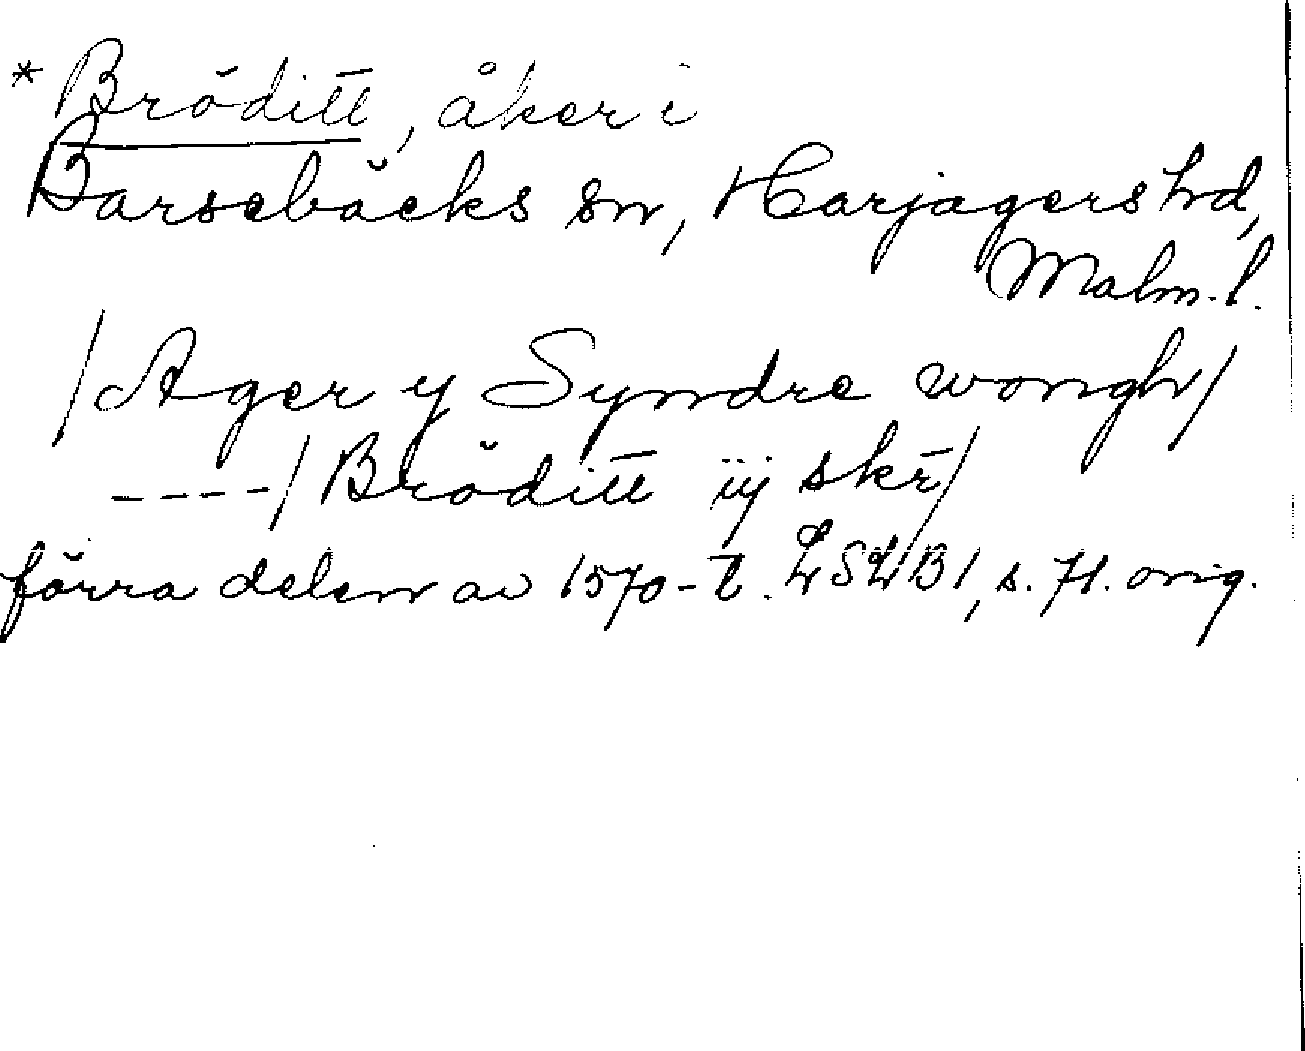 * Bröditt, åker i
Barsebäcks sn, Harjagers hd,
Malm. l.
/Ager y Syndre wongh/
----/Bröditt iij skr̄/
förra delen av 1570-t. LSLB1, s. 71. orig.